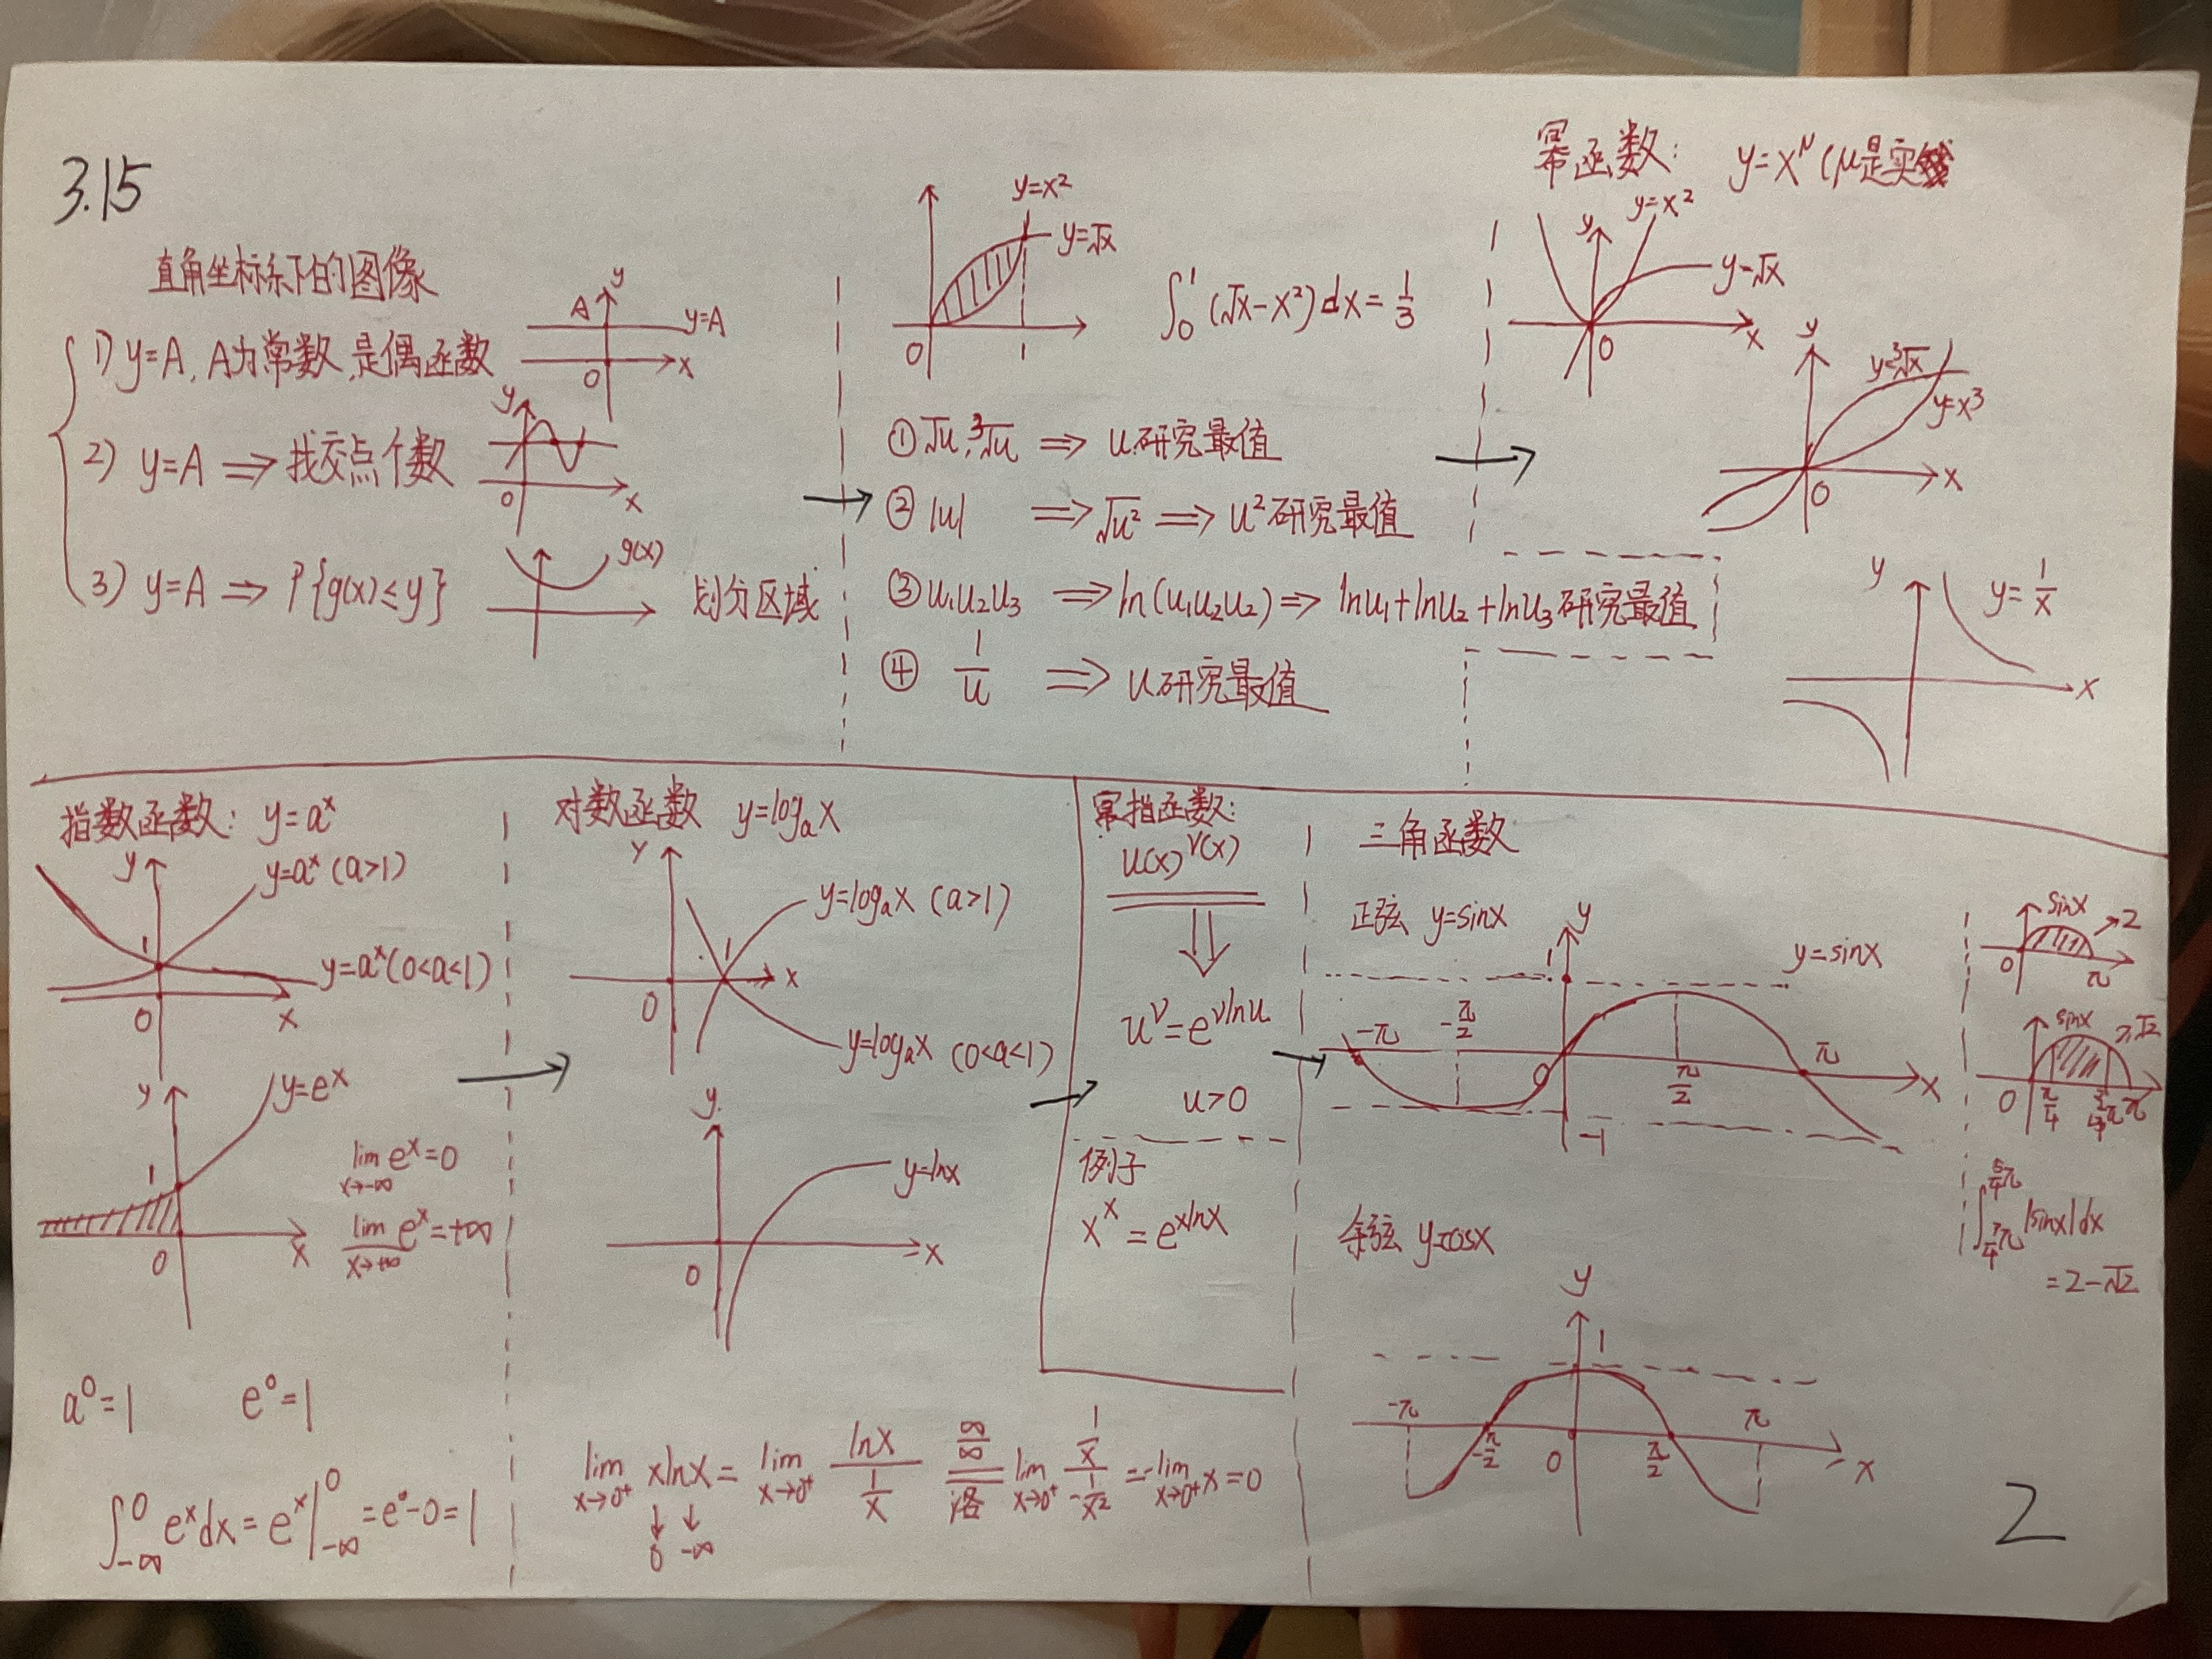 3.15
直角坐标系下的图像
1) y=A, A为常数,是偶函数
A y y=A x 0
2) y=A ⇒ 找交点个数
y 0 x
3) y=A ⇒ P{g(x)≤y}
g(x) 划分区域
y=x²
y=√x
0 1
∫₀¹(√x-x²)dx=1/3
① √u, ³√u ⇒ u研究最值
② |u| ⇒ √u² ⇒ u²研究最值
③ u₁u₂u₃ ⇒ ln(u₁u₂u₂) ⇒ lnu₁+lnu₂+lnu₃研究最值
④ 1/u ⇒ u研究最值
幂函数: y=x^μ (μ是实
y y=x²
y=√x
0 x
y y=³√x
y=x³
0 x
y y=1/x
x
指数函数: y=aˣ
y y=aˣ (a>1)
1
y=aˣ(0<a<1)
0 x
y y=eˣ
1
0 x
lim x→-∞ eˣ=0
lim x→+∞ eˣ=+∞
a⁰=1 e⁰=1
∫_{-∞}^0 eˣdx=eˣ|_{-∞}^0=e⁰-0=1
对数函数 y=logₐx
y y=logₐx (a>1)
1 x
0
y=logₐx (0<a<1)
y
y=lnx
0 x
lim x→0⁺ xlnx = lim x→0⁺ lnx/(1/x) ∞/∞ 洛 lim x→0⁺ (1/x)/(-1/x²) =-lim x→0⁺ x=0
↓ ↓
0 -∞
幂指函数:
u(x)^v(x)
⇓
u^v=e^{vlnu}
u>0
例子
xˣ=e^{xlnx}
三角函数
正弦 y=sinx
y
1
y=sinx
-π -π/2 0 π/2 π x
-1
余弦 y=cosx
y
1
-π -π/2 0 π/2 π x
sinx
→2
0 π
sinx
√2
0 π/4 π
|sinx|dx
=2-√2
2